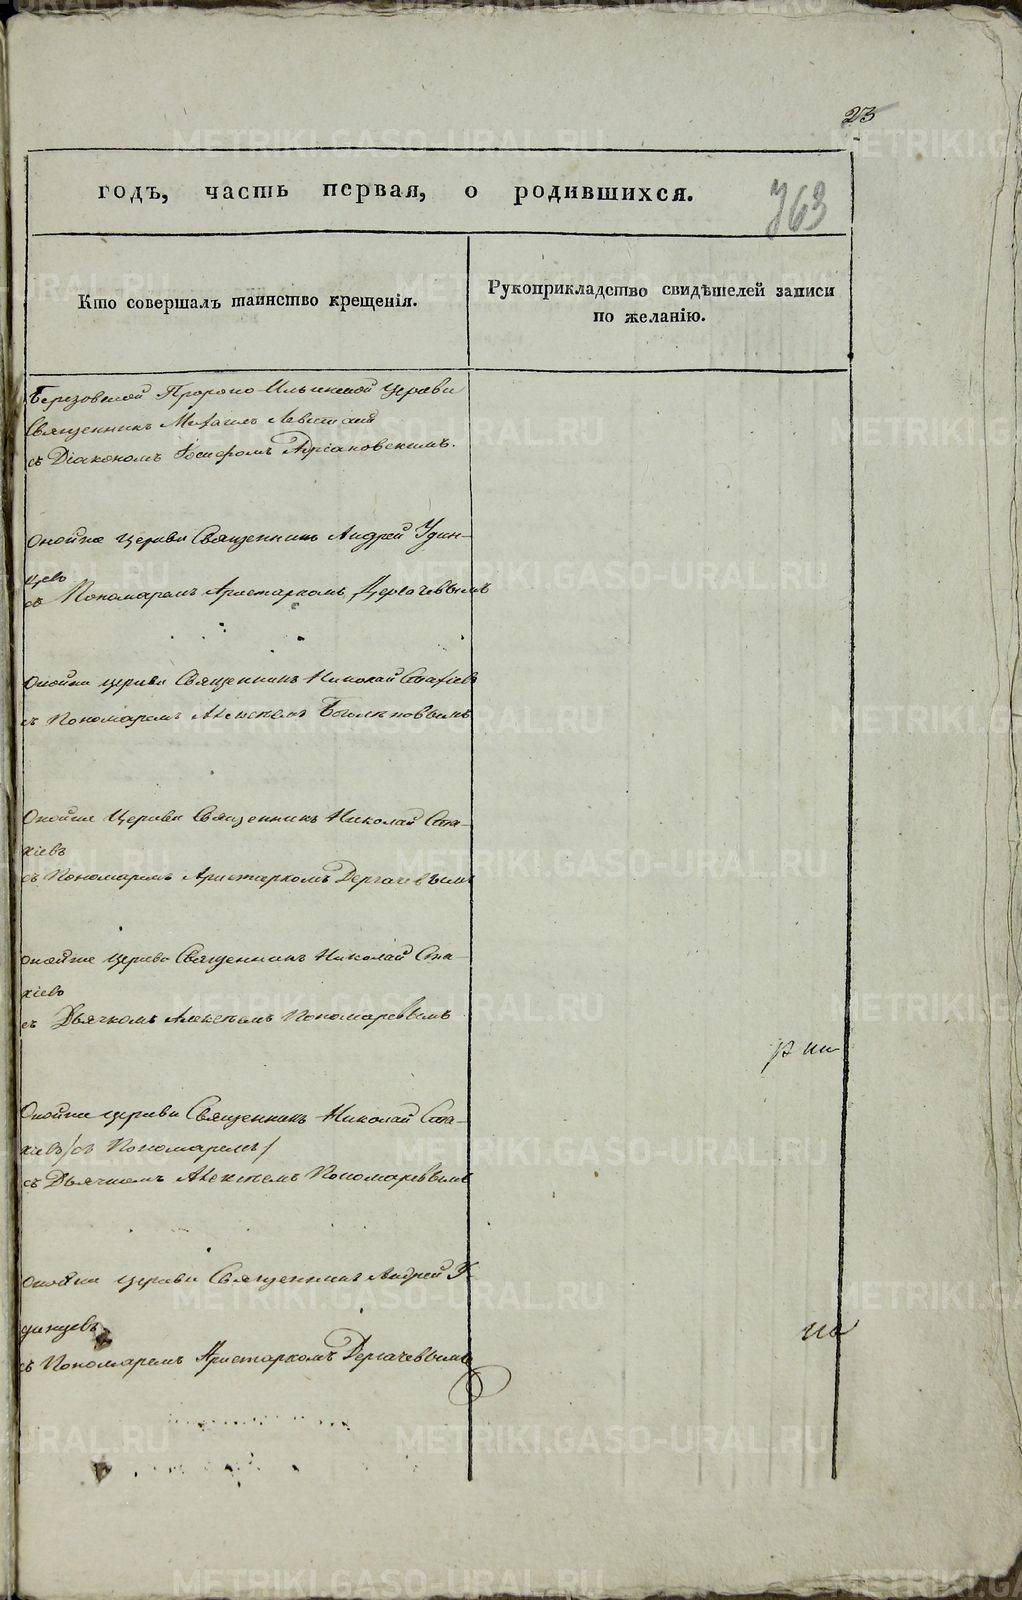 23
годъ, часть первая, о родившихся.
763
Кто совершалъ таинство крещенія.
Рукоприкладство свидѣтелей записи
по желанію.
Березовской Пророко-Ильинской церкви
Священникъ Михаилъ Левитскій
съ Діакономъ Іосифомъ Адріановскимъ.
Онойже церкви Священникъ Андрей Удин-
цевъ
съ Пономаремъ Аристархомъ Дергачевымъ
Онойже церкви Священникъ Николай Стахіевъ
съ Пономаремъ Алексѣемъ
Онойже Церкви Священникъ Николай Ста-
хіевъ
съ Пономаремъ Аристархомъ Дергачевымъ
онойже церкви Священникъ Николай Ста-
хіевъ
съ Дьячкомъ Алексѣемъ Пономаревымъ
Онойже церкви Священникъ Николай Ста-
хіевъ /съ Пономаремъ/
съ Дьячкомъ Алексѣемъ Пономаревымъ
онойже церкви Священникъ Андрей У-
динцевъ
съ Пономаремъ Аристархомъ Дергачевымъ
METRIKI.GASO-URAL.RU